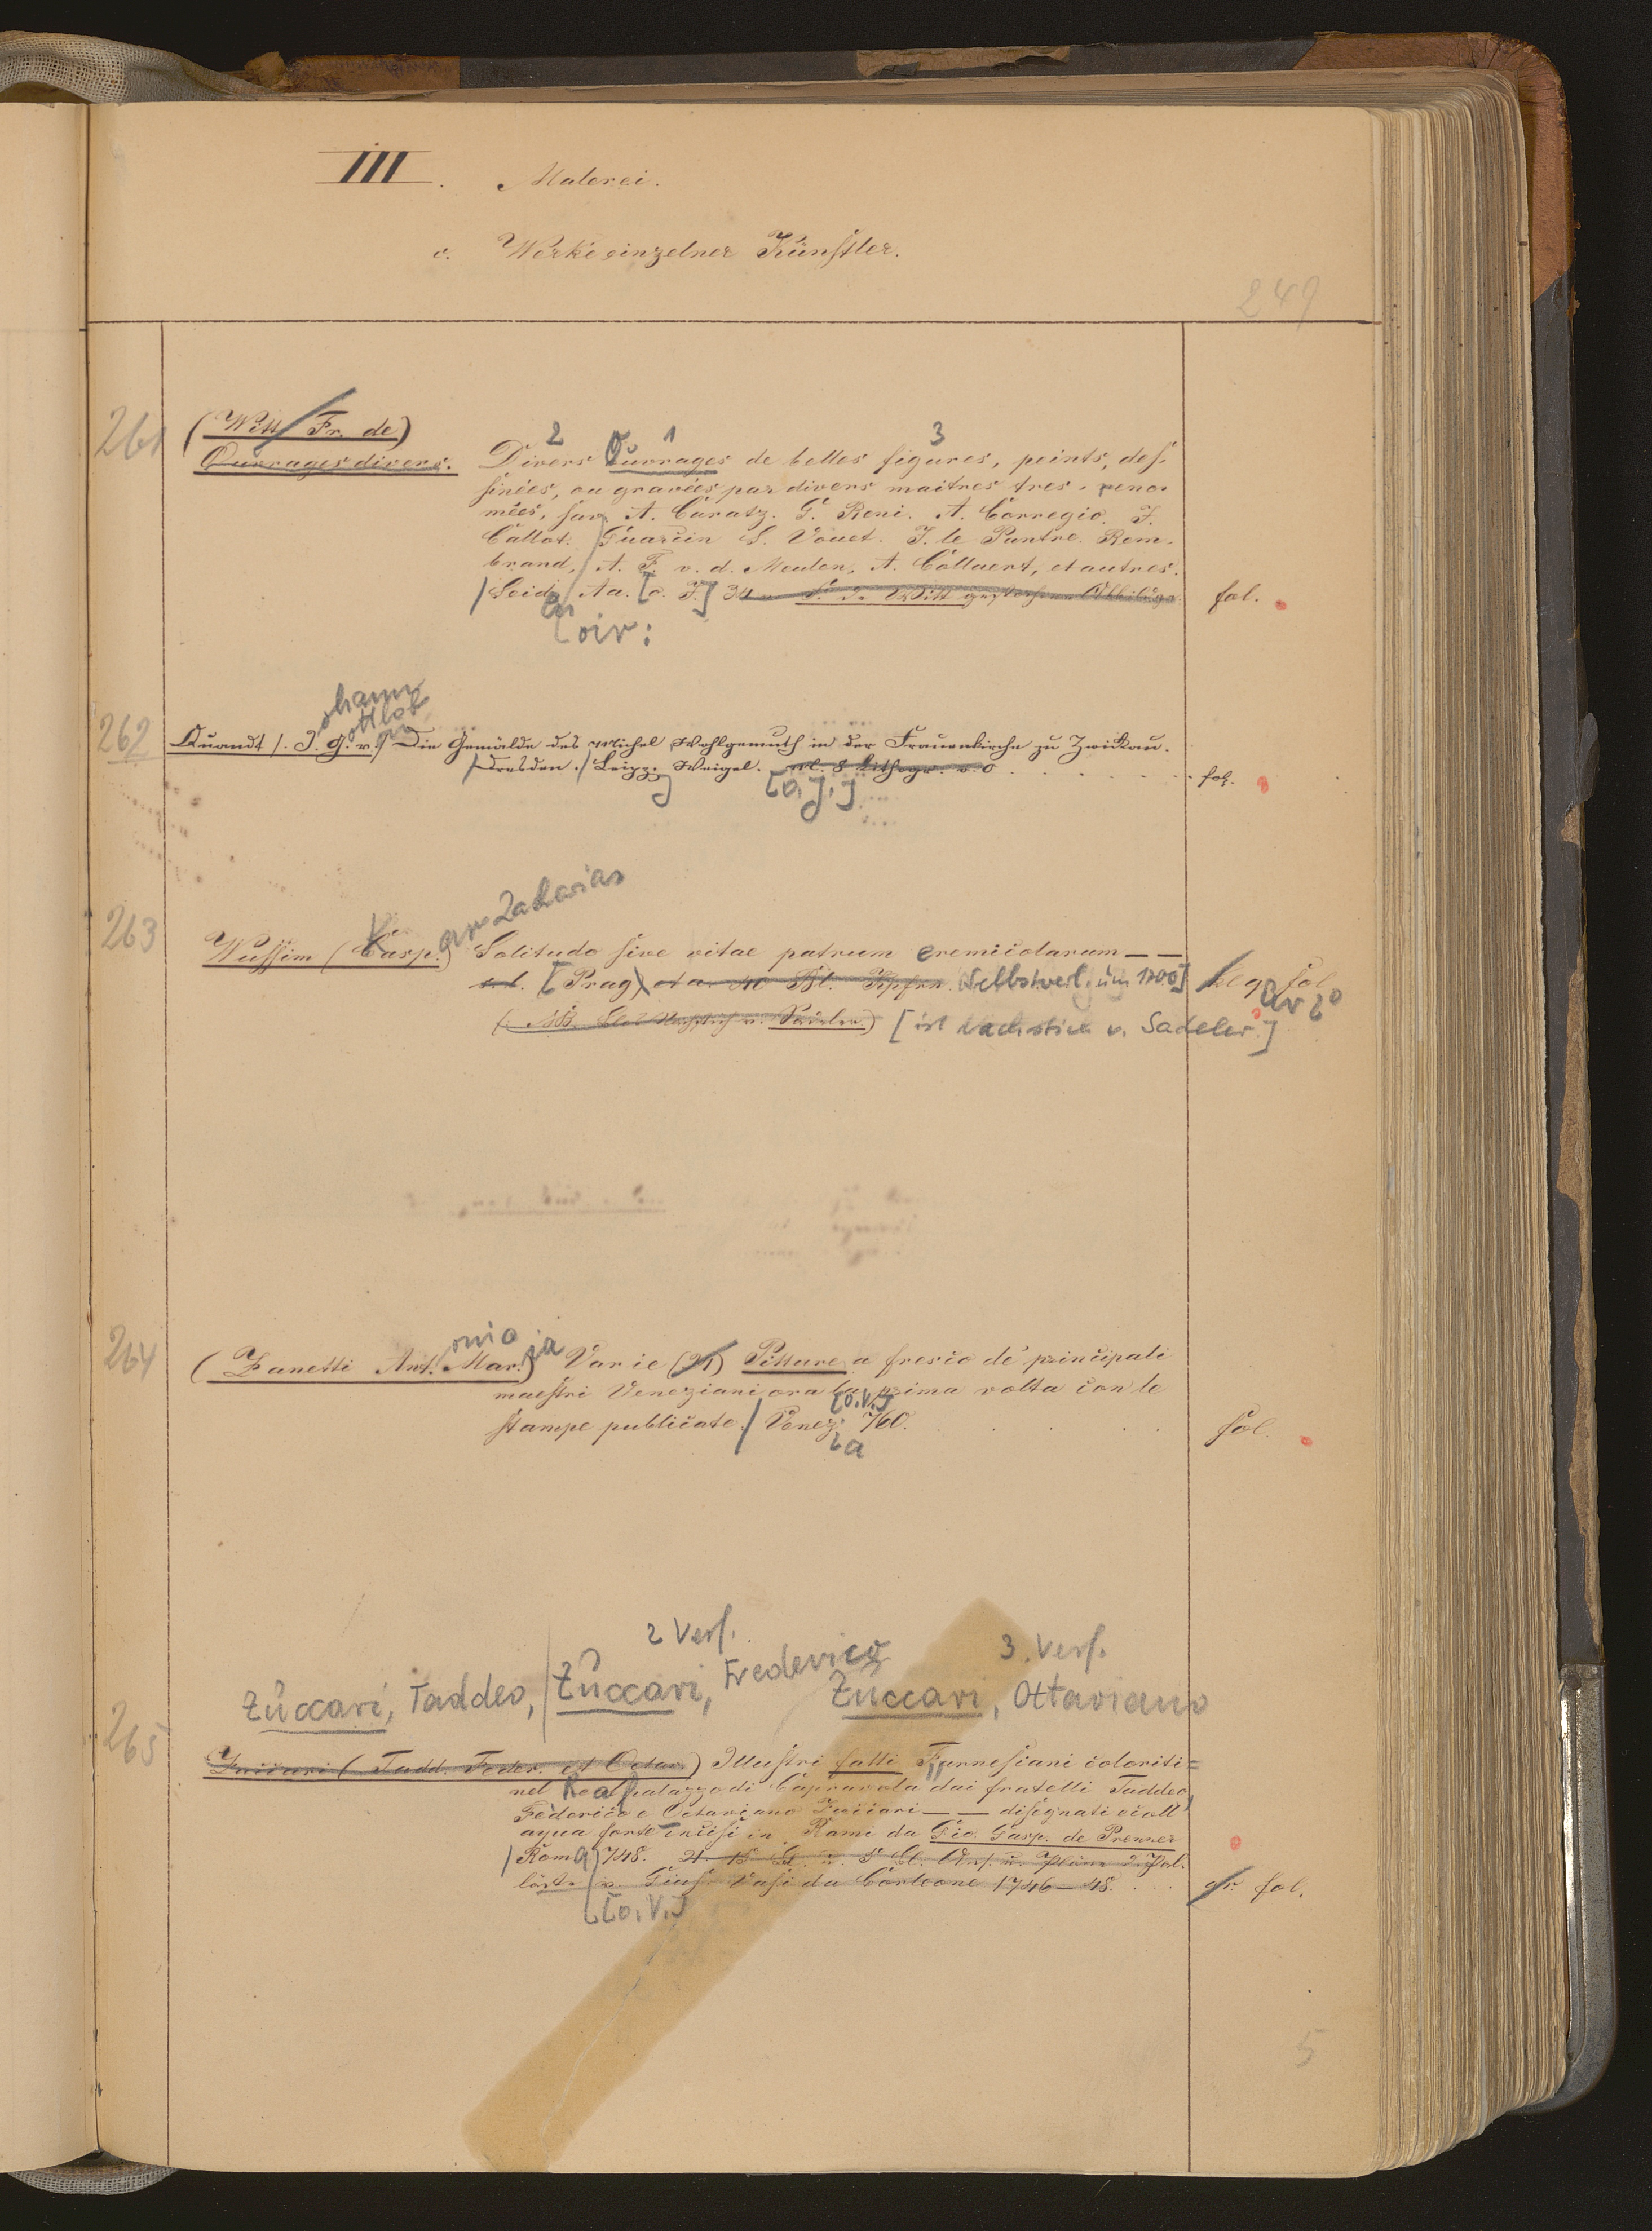 III. Malerei.
c. Werke einzelner Künstler.
249
261
(Witt Fr. de)
2 1 3
Ouvrages divers. Divers Ouvrages de belles figures, peints, des-
sinées, ou gravées par divers maitres tres-reno-
mées, sur A. Caratz. G. Reni. A. Corregio. J.
Callot. Guarcin S. Vouet. J. le Pautre. Rem-
brand, A. F. v. d. Meulen. A. Collaert, et autres.
Leid. Aa. [o. J.] 34 fol.
en
oir:
ohann
ottlob
262 Quandt J. G. v. Die Gemälde des Michel Wohlgemuth in der Frauenkirche zu Zwickau.
Dresden. Leipz. Weigel. m. 8 Lithogr. v. o fol.
[o. J.]
ar Zacharias
263 Wussim (Casp.) Solitudo sive vitae patrum eremicolarum — —
[Prag) 40 Bl. Kpfrn. Selbstverl. um 1700] qu fol
qu 2°
[ist Nachstich v. Sadeler.]
onio ia
264 (Zanetti Ant. Mar.) Varie (24) Pitture a fresco de' principali
maestri Veneziani ora la prima volta con le
[o. V.]
stampe publicate. Venez. 760. fol.
ia
2 Verf. 3. Verf.
Zuccari, Taddeo, Zuccari, Frederico Zuccari, Ottaviano
265 Zuccari (Tadd. Feder. et Octav.) Illustri fatti Farnesiani coloriti=
nel Real palazzo di Caprarola dai fratelli Taddeo
Federico e Octaviano Zuccari — — disegnati e coll'
aqua forte incisi in Rami da Gio. Gasp. de Prenner
Roma 748. 21. 15 Bl. u. 5 Bl. Ans. u. Pläne d. Pal.
v. Gius. Vasi da Corleone 1746—48. gr. fol.
[o. V.]
5